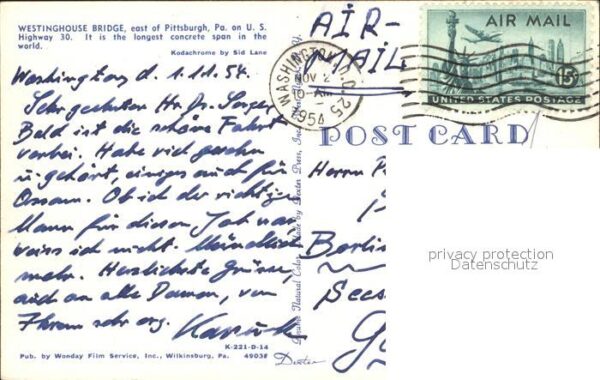 WESTINGHOUSE BRIDGE, east of Pittsburgh, Pa. on U. S.
Highway 30. It is the longest concrete span in the
world.
Kodachrome by Sid Lane
Washington d. 1.11.54
Sehr geehrter Hr. Dr.
Bald ist die schöne Fahrt
vorbei. Habe viel gesehen
u. gehört, einiges auch für
Ossam. Ob ich der richtige
Mann für diesen Job war
weiss ich nicht. Mündlich
mehr. Herzlichste Grüsse,
auch an alle Damen, von
Ihrem sehr erg.
K-221-D-14
Pub. by Wonday Film Service, Inc., Wilkinsburg, Pa. 49038
Dexter
Natural Color, Made by Dexter Press, Inc.
AIR-
MAIL
WASHINGTON, D.C. 25
NOV 2
10 AM
1954
AIR MAIL
15¢
UNITED STATES POSTAGE
POST CARD
Herrn
Berlin
privacy protection
Datenschutz